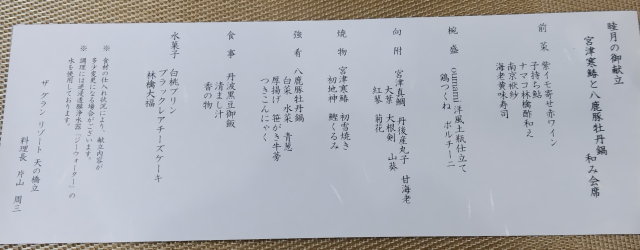 睦月の御献立
宮津寒鰆と八鹿豚牡丹鍋　和み会席
前菜　紫イモ寄せ赤ワイン
子持ち鮎
ナマコ林檎酢和え
南京袱紗
海老黄味寿司
椀盛　ounami洋風土瓶仕立て
鶏つくね　ポルチーニ
向附　宮津真鯛　丹後産丸子　甘海老
大葉　大根剣　山葵
紅蓼　菊花
焼物　宮津寒鰆　初雪焼き
初地神　鰹くるみ
強肴　八鹿豚牡丹鍋
白菜　水菜　青葱
厚揚げ　笹がき牛蒡
つきこんにゃく
食事　丹波黒豆御飯
清まし汁
香の物
水菓子　白桃プリン
ブラックレアチーズケーキ
林檎大福
※　食材の仕入れ状況により、献立内容が
多少変更になる場合がございます。
※　調理には逆浸透膜浄水器「シーウォーター」の
水を使用しております。
ザ　グラン　リゾート　天の橋立
料理長　片山　周三